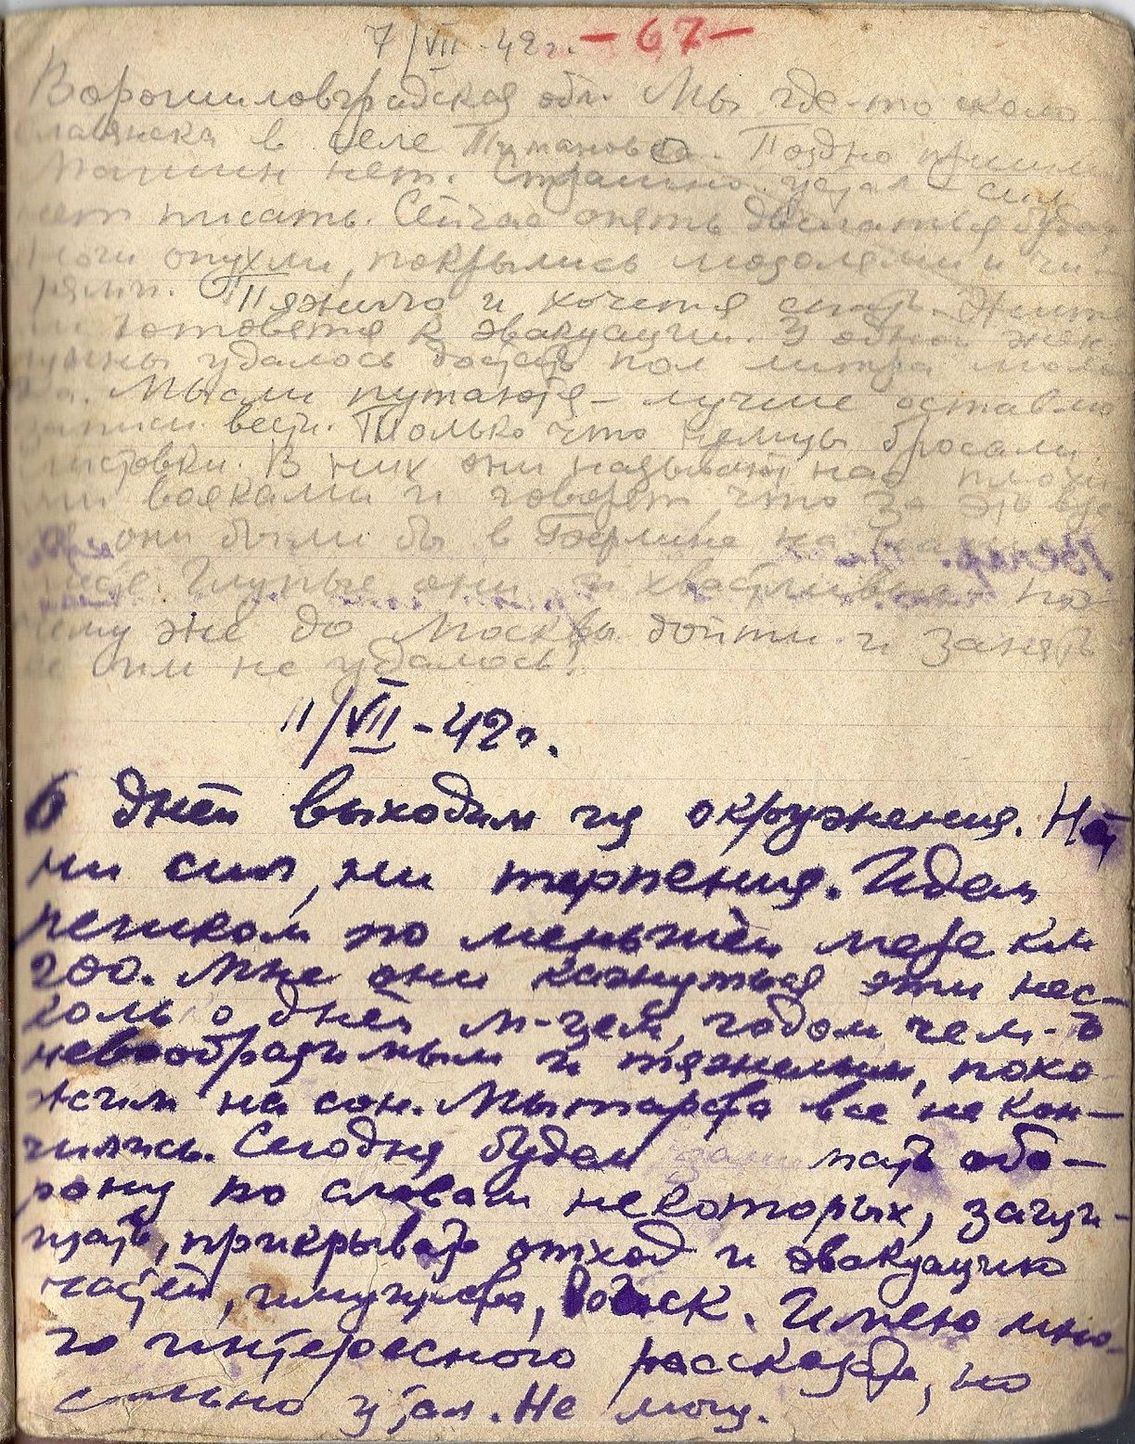 7/VII-42г. -67-
Ворошиловградская обл. Мы где-то около
в селе Тимоново. Поздно пришли
Машин нет. Страшно устал - сил
нет писать. Сейчас опять двигаться будем
Ноги опухли, покрылись мозолями и чи-
рями. Тяжело и хочется спать. Жите-
ли готовятся к эвакуации. У одной жен-
щины удалось достать пол литра моло-
ка. Мысли путаются - лучше оставлю
записи вести. Только что немцы бросали
листовки. В них они называют нас плохи-
ми вояками и говорят, что за это вре-
они были бы в Берлине на
месте. Глупые они и хвастливые - по-
чему же до Москвы дойти и занять
ее им не удалось?
11/VII-42г.
6 дней выходим из окружения. Нет
ни сил, ни терпения. Идем
пешком по меньшей мере км
200. Мне они кажуться эти нес-
колько дней м-цем, годом чем-то
невообразимым и тяжелым, похо-
жим на сон. Мытарства все не кон-
чились. Сегодня будем занимать обо-
рону по словам некоторых, защи-
щать, прикрывать отход и эвакуацию
частей, имущества, войск. Имею мно-
го интересного рассказать, но
сильно устал. Не могу.